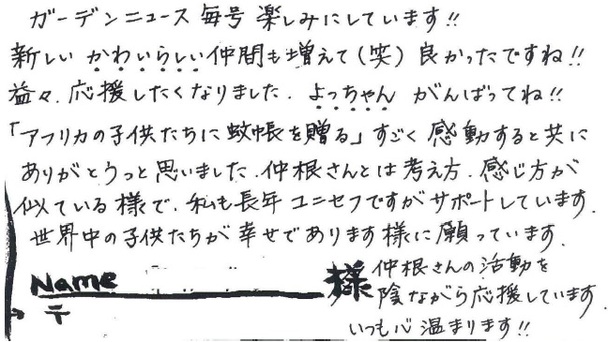 ガーデンニュース 毎号 楽しみにしています!!
新しい かわいらしい仲間も増えて(笑) 良かったですね!!
益々、応援したくなりました. よっちゃん がんばってね!!
「アフリカの子供たちに蚊帳を贈る」すごく 感動すると共に
ありがとうっと思いました. 仲根さんとは考え方、感じ方が
似ている様で、私も長年 ユニセフですがサポートしています.
世界中の子供たちが幸せであります様に願っています.
Name 様
〒
仲根さんの活動を
陰ながら応援しています.
いつも心温まります!!